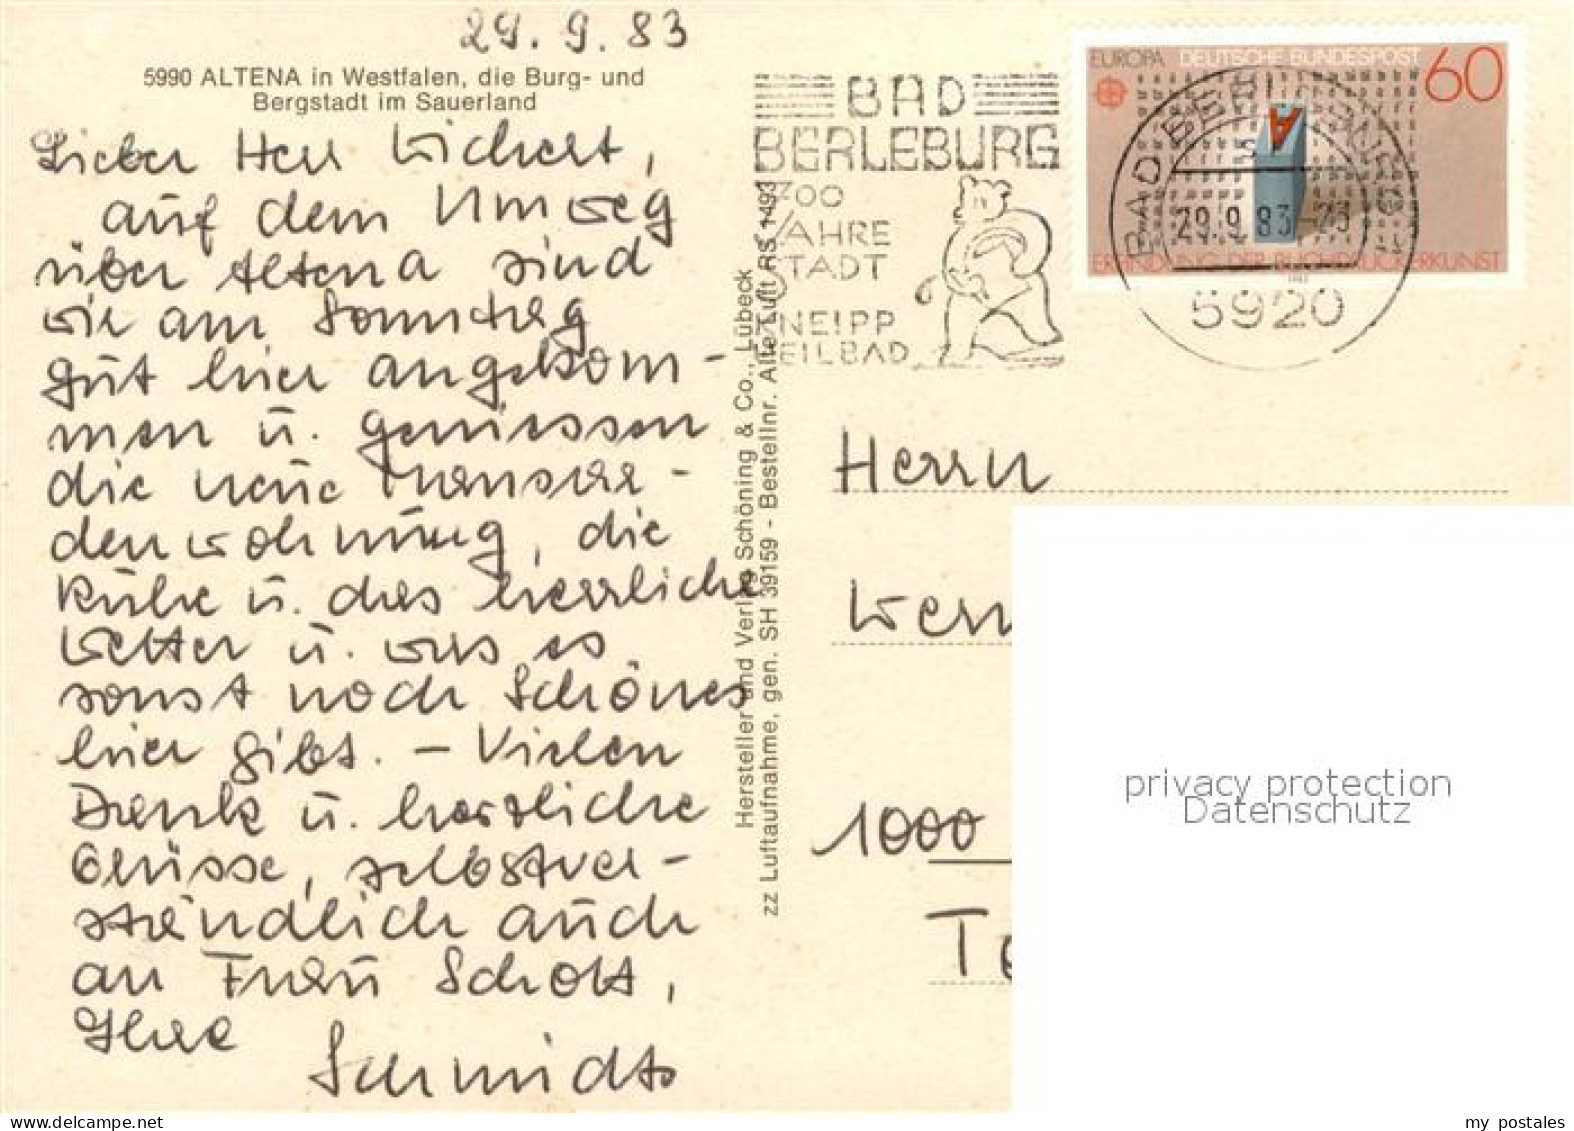 29.9.83
5990 ALTENA in Westfalen, die Burg- und
Bergstadt im Sauerland
Lieber Herr Wichert,
auf dem Umweg
über Altena sind
wir am Sonntag
gut hier angekom-
men u. geniessen
die neue Mansar-
denwohnung, die
Ruhe u. das herrliche
Wetter u. was es
sonst noch Schönes
hier gibt. - Vielen
Dank u. herzliche
Grüsse, selbstver-
ständlich auch
an Frau Schott,
Ihre
Schmidts
Hersteller und Verlag Schöning & Co., Lübeck
zz Luftaufnahme, gen. SH 39159 - Bestellnr. Alte/Luft RS 1493
BAD
BERLEBURG
700
JAHRE
STADT
KNEIPP
HEILBAD
EUROPA DEUTSCHE BUNDESPOST 60
ERFINDUNG DER BUCHDRUCKERKUNST
BAD BERLEBURG
29.9.83
5920
Herrn
Wern
1000
privacy protection
Datenschutz
my postales